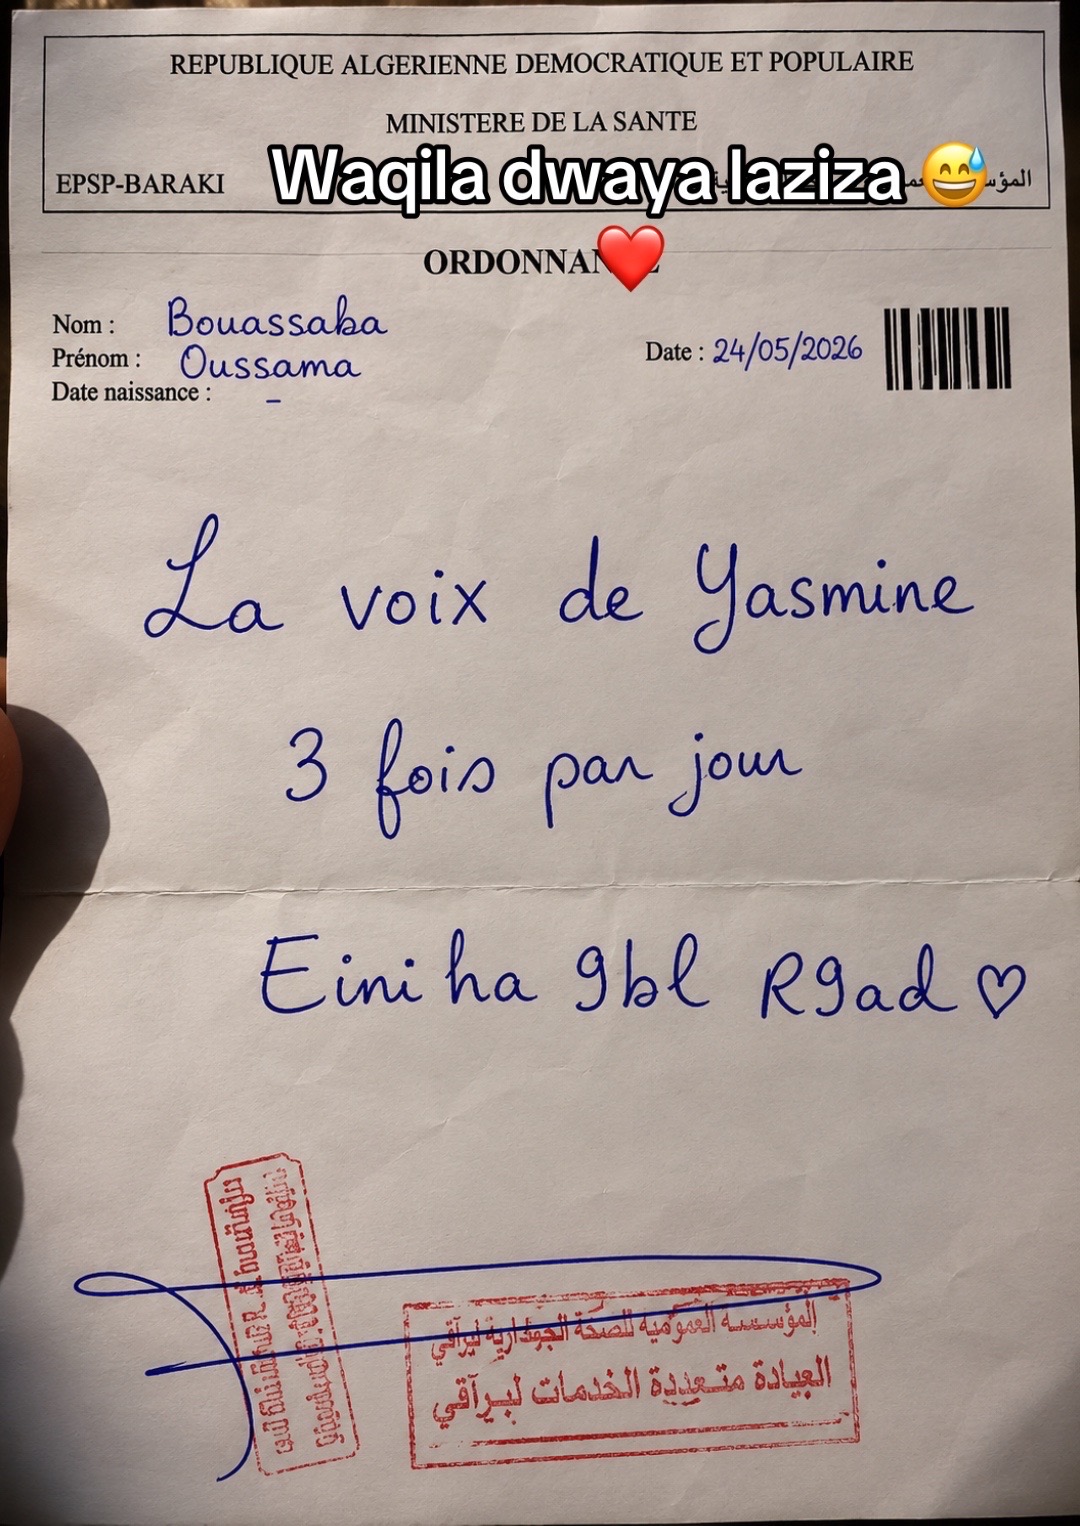 REPUBLIQUE ALGERIENNE DEMOCRATIQUE ET POPULAIRE
MINISTERE DE LA SANTE
EPSP-BARAKI
Waqila dwaya laziza 😅
❤️
Nom : Bouassaba
Prénom : Oussama
Date naissance : –
Date : 24/05/2026
La voix de Yasmine
3 fois par jour
Eini ha 9bl R9ad ♡
العيادة متعددة الخدمات لبرآقي